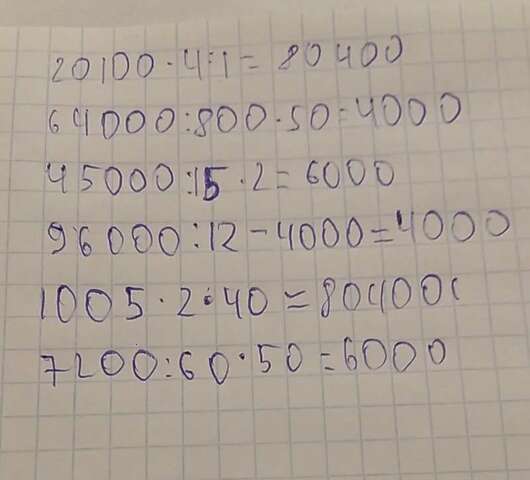 20100·4:1=80400
64000:800·50=4000
45000:15·2=6000
96000:12-4000=4000
1005·2·40=80400(
7200:60·50=6000